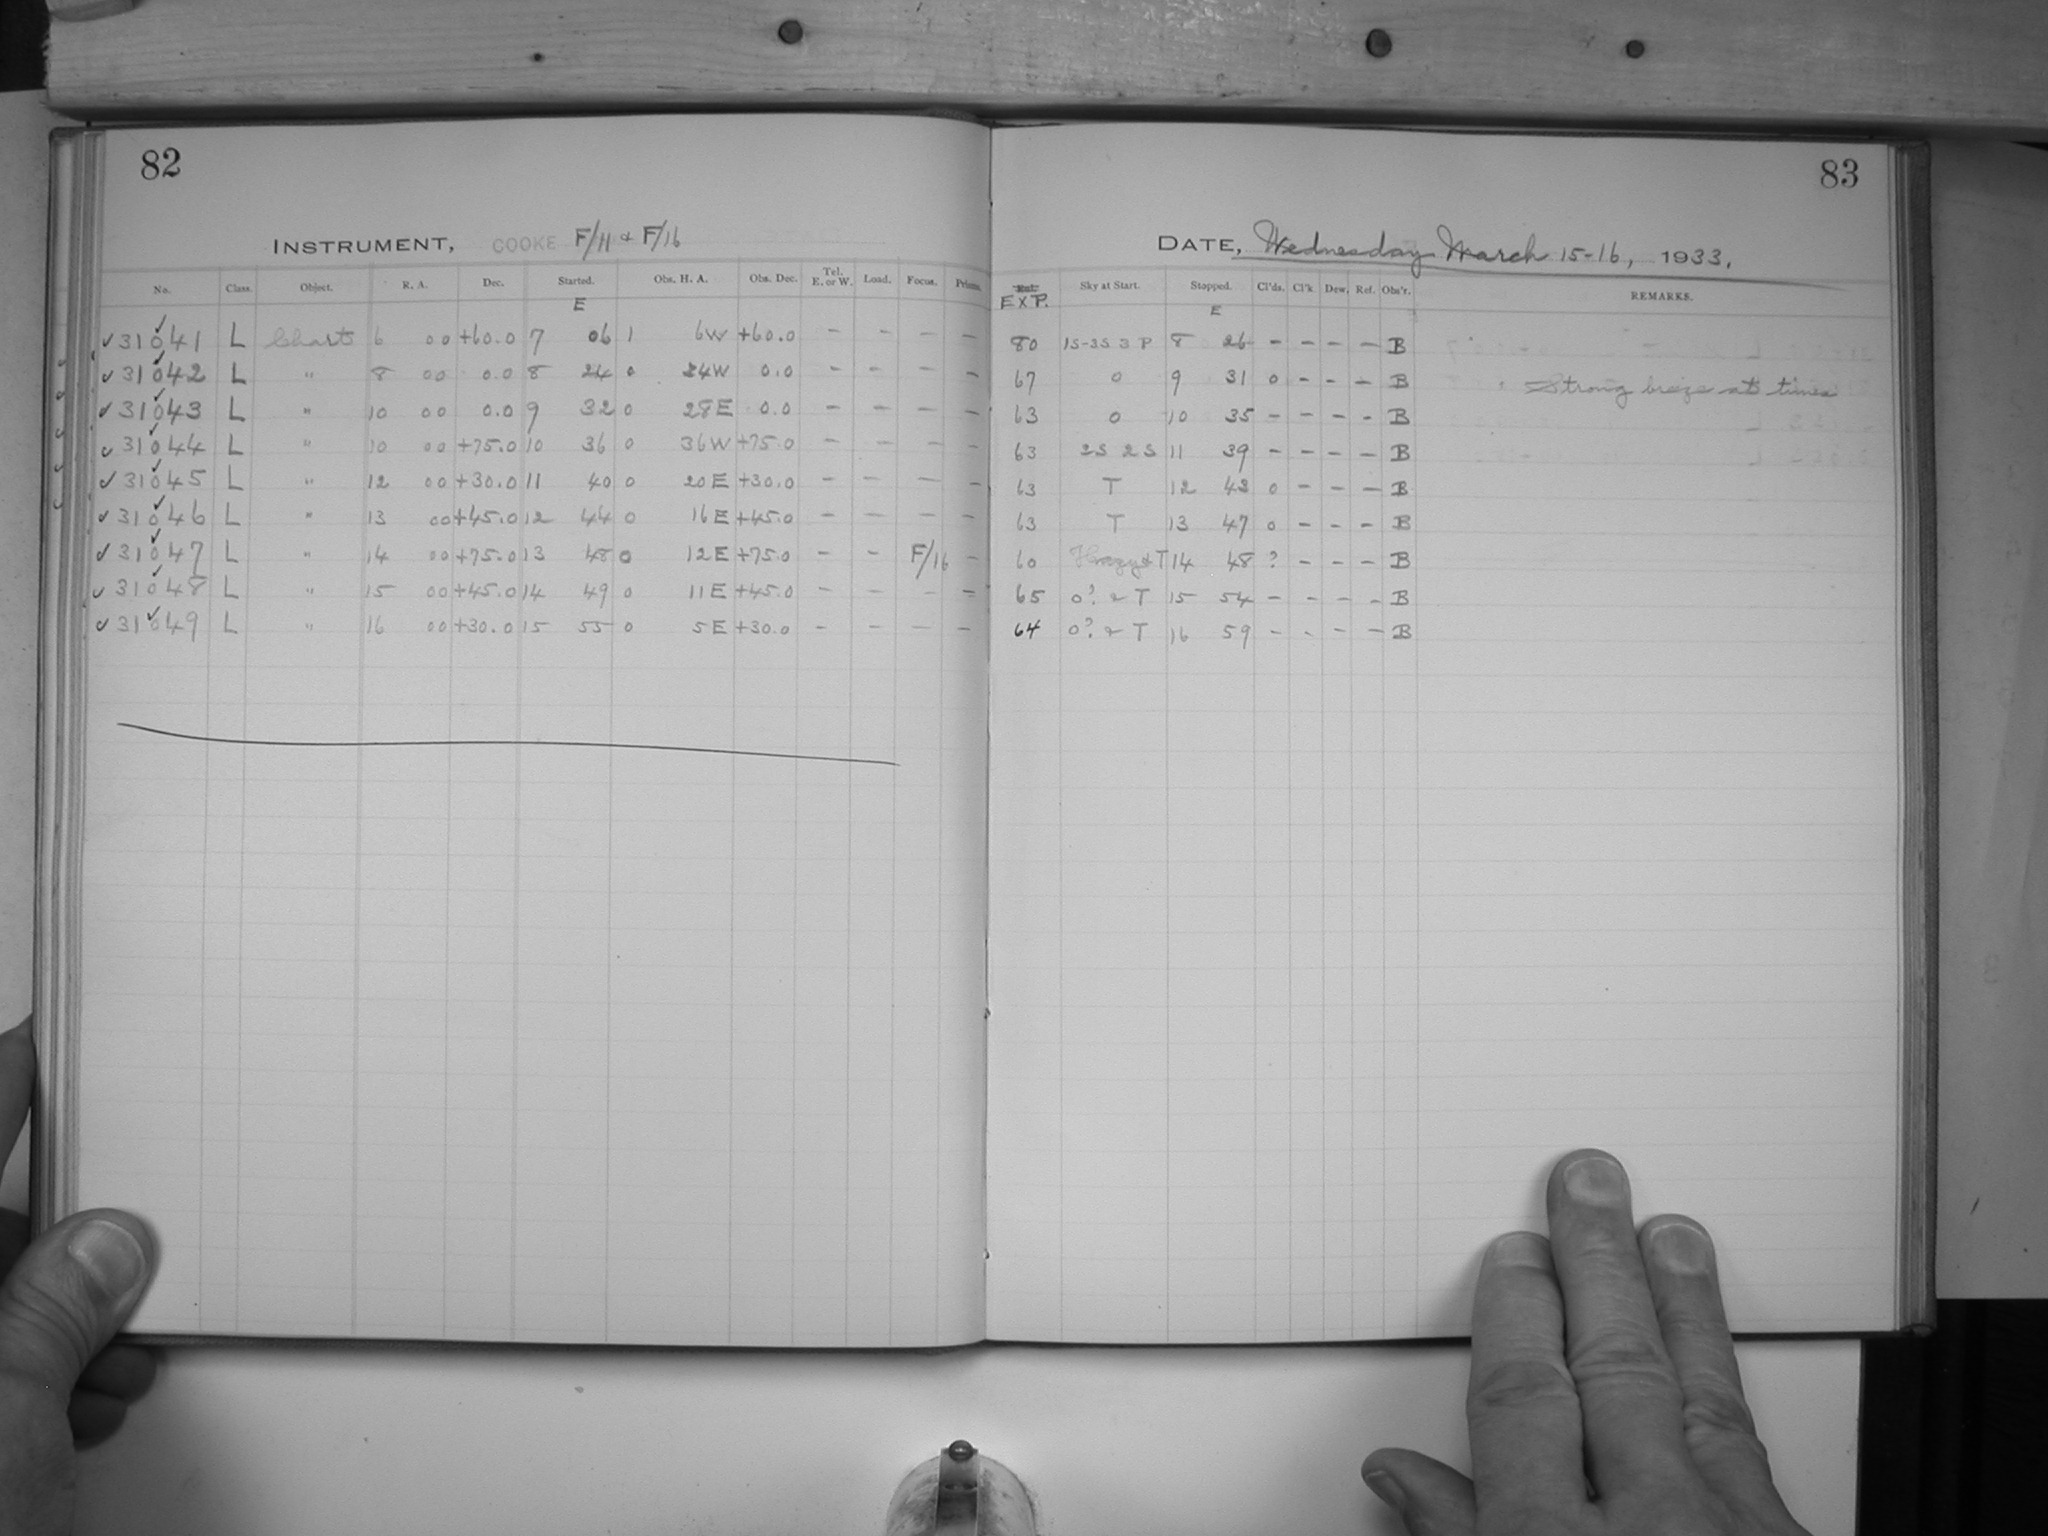 82
INSTRUMENT, COOKE F/11 & F/16
No. Class. Object. R. A. Dec. Started. Obs. H. A. Obs. Dec. Tel. E. or W. Load. Focus. Prisms.
E
✓31041 L Chart 6 00 +60.0 7 06 1 6W +60.0 – – – –
✓31042 L " 8 00 0.0 8 24 0 24W 0.0 – – – –
✓31043 L " 10 00 0.0 9 32 0 28E 0.0 – – – –
✓31044 L " 10 00 +75.0 10 36 0 36W +75.0 – – – –
✓31045 L " 12 00 +30.0 11 40 0 20E +30.0 – – – –
✓31046 L " 13 00 +45.0 12 44 0 16E +45.0 – – – –
✓31047 L " 14 00 +75.0 13 48 0 12E +75.0 – – F/16 –
✓31048 L " 15 00 +45.0 14 49 0 11E +45.0 – – – –
✓31049 L " 16 00 +30.0 15 55 0 5E +30.0 – – – –
83
DATE, Wednesday March 15-16, 1933.
EXP. Sky at Start. Stopped. Cl'ds. Cl'k Dew. Ref. Obs'r. REMARKS.
E
80 1S-3S 3 P 8 26 – – – – B
67 0 9 31 0 – – – B Strong breeze at times
63 0 10 35 – – – – B
63 2S 2S 11 39 – – – – B
63 T 12 43 0 – – – B
63 T 13 47 0 – – – B
60 Hazy & T 14 48 ? – – – B
65 0? & T 15 54 – – – – B
64 0? & T 16 59 – – – – B